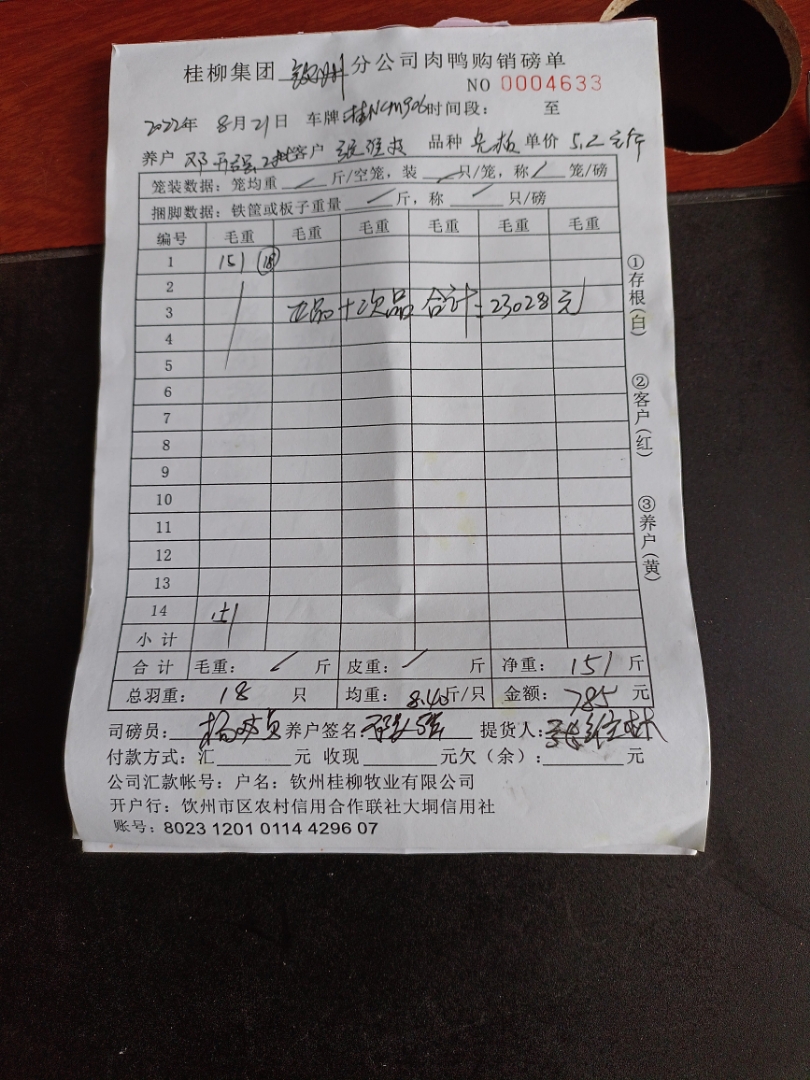 桂柳集团 钦州 分公司肉鸭购销磅单
NO 0004633
2022年 8月21日 车牌 桂NCM906 时间段： 至
养户 邓 客户 品种 单价 5.2元/斤
笼装数据：笼均重 / 斤/空笼，装 / 只/笼，称 / 笼/磅
捆脚数据：铁筐或板子重量 / 斤，称 / 只/磅
编号 毛重 毛重 毛重 毛重 毛重 毛重
1 151 18
2
3 正品+次品 合计=23028元
4
5
6
7
8
9
10
11
12
13
14
小计
合计 毛重： 斤 皮重： 斤 净重： 151 斤
总羽重： 18 只 均重： 8.40斤/只 金额： 785 元
司磅员： 杨 养户签名 提货人：
付款方式：汇 元 收现 元欠（余）： 元
公司汇款帐号：户名：钦州桂柳牧业有限公司
开户行：钦州市区农村信用合作联社大垌信用社
账号：8023 1201 0114 4296 07
①存根（白）
②客户（红）
③养户（黄）